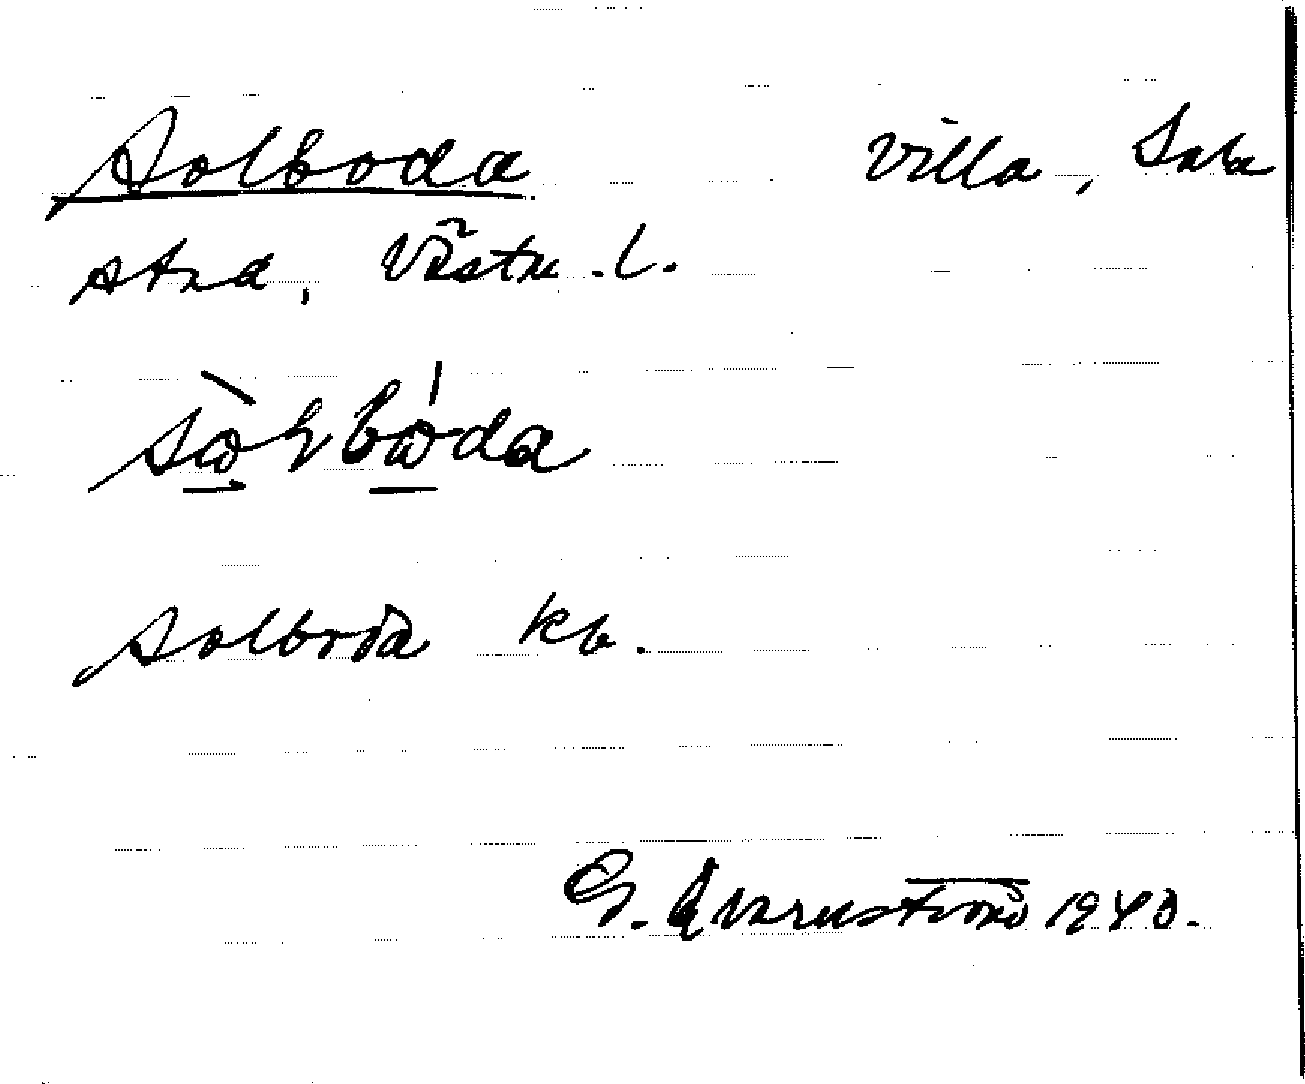 Solboda villa, Sala
stad, Västm. l.
sὼlbώda
Solboda kb.
G. Qvarnström 1940.